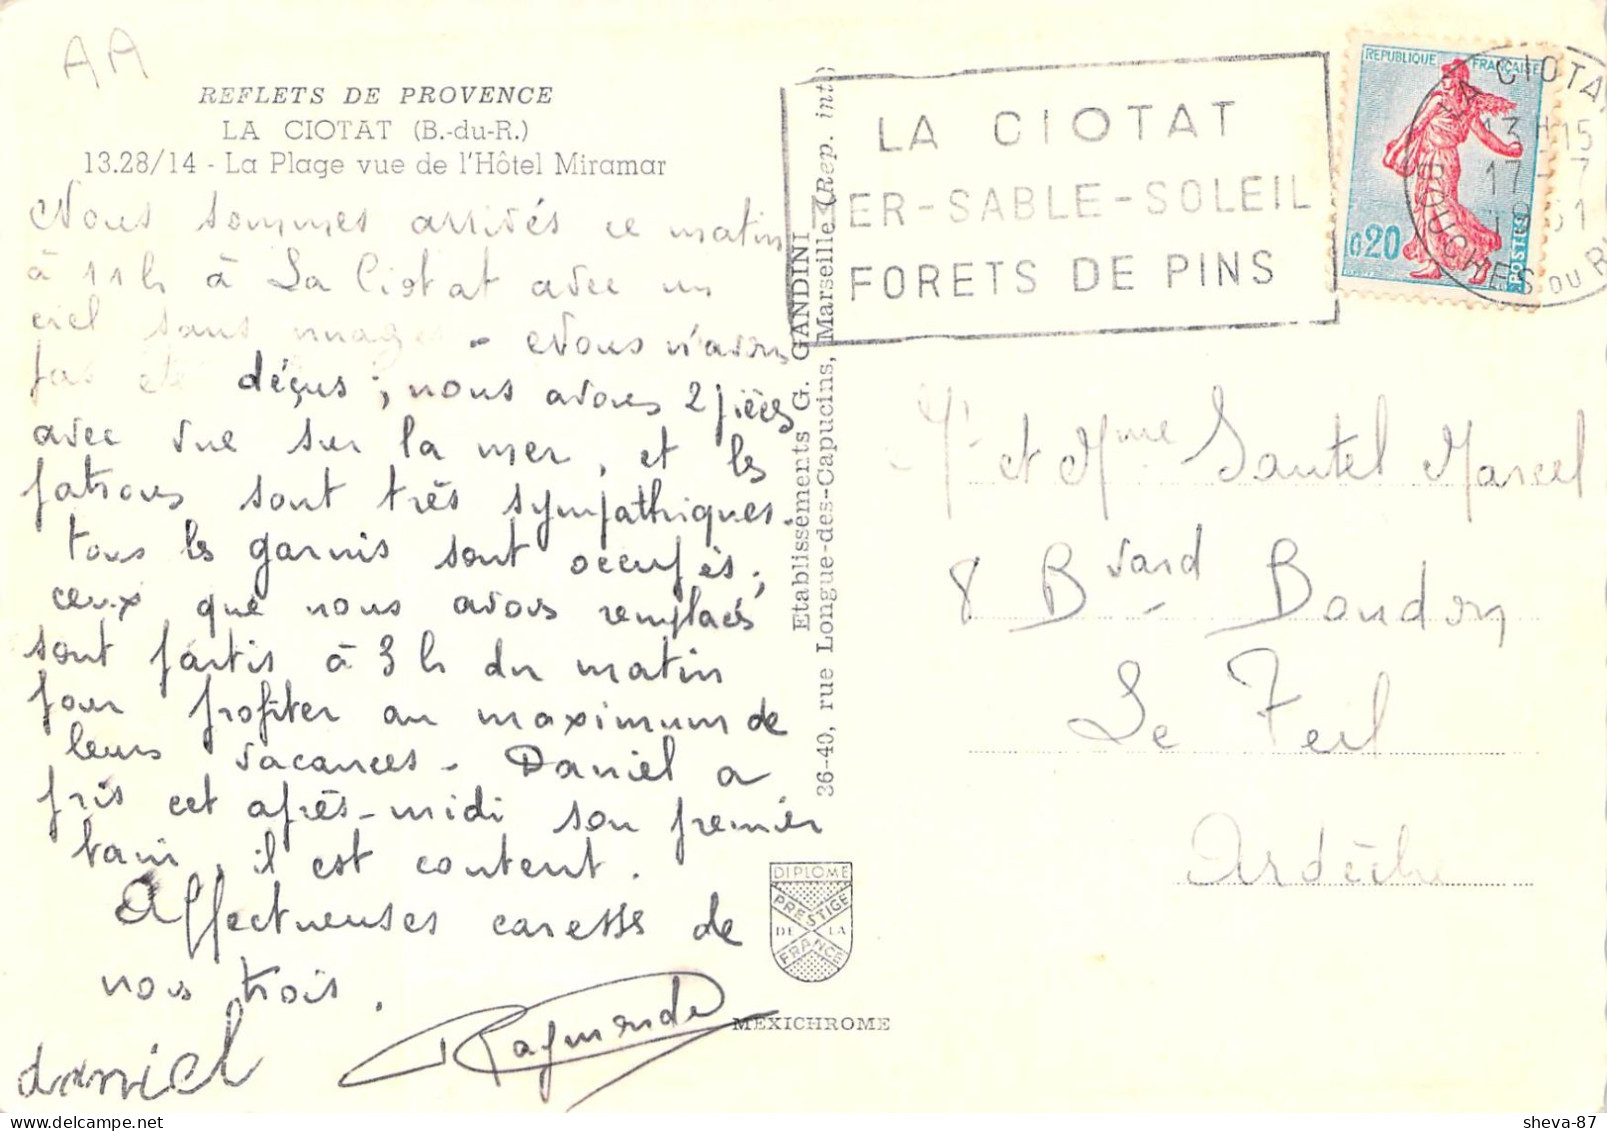 AA
REFLETS DE PROVENCE
LA CIOTAT (B.-du-R.)
13.28/14 - La Plage vue de l'Hôtel Miramar
Nous sommes arrivés ce matin
à 11h à La Ciotat avec un
ciel sans nuages - Nous n'avons
pas été déçus ; nous avons 2 pièces
avec vue sur la mer, et les
patrons sont très sympathiques.
tous les garnis sont occupés ;
ceux que nous avons remplacés
sont partis à 3 h du matin
pour profiter au maximum de
leurs vacances - Daniel a
pris cet après-midi son premier
bain, il est content.
Affectueuses caresses de
nos trois.
daniel
Raymonde
Etablissements G. GANDINI
36-40, rue Longue-des-Capucins, Marseille (Rep. int)
DIPLOME
PRESTIGE
DE LA
FRANCE
MEXICHROME
LA CIOTAT
ER-SABLE-SOLEIL
FORETS DE PINS
REPUBLIQUE FRANÇAISE
0,20
POSTES
LA CIOTAT
13H15
17-7
1961
BOUCHES DU R
Mr et Mme Sautel Marcel
8 Bvard Baudon
Le Teil
Ardèche
sheva-87